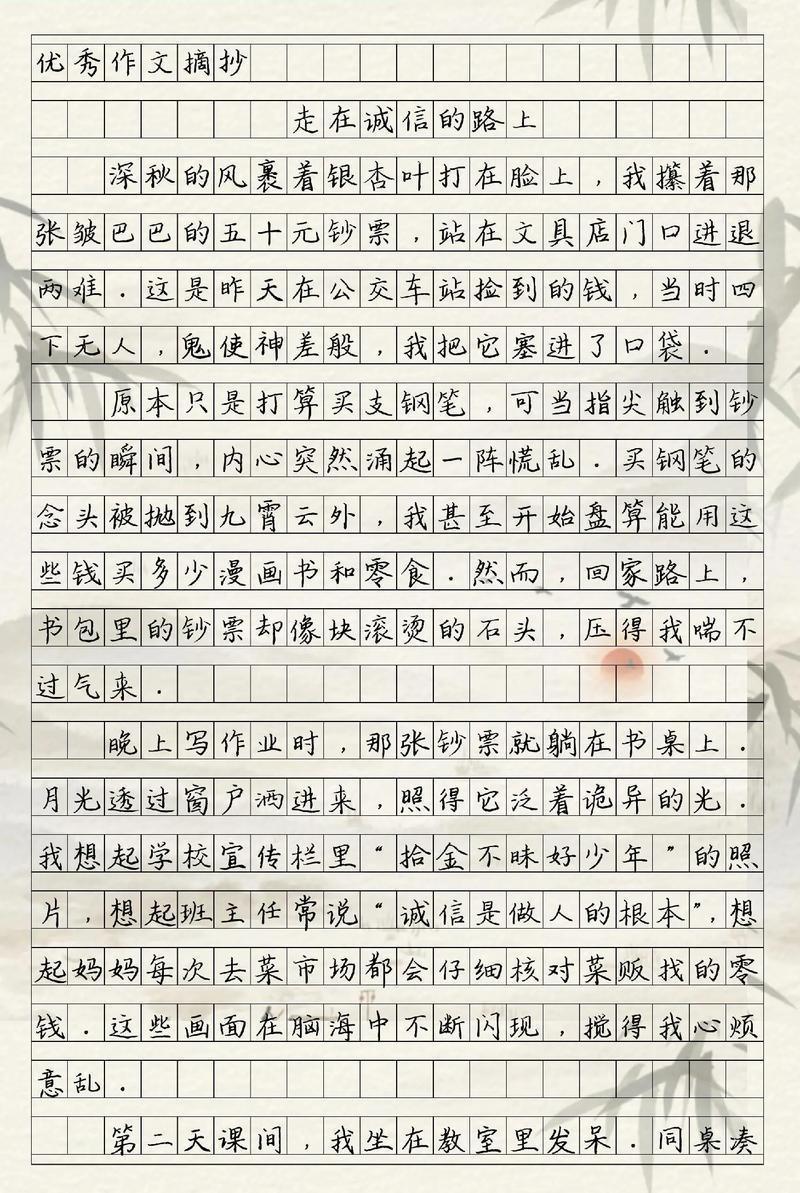 优秀作文摘抄
走在诚信的路上
深秋的风裹着银杏叶打在脸上，我攥着那
张皱巴巴的五十元钞票，站在文具店门口进退
两难．这是昨天在公交车站捡到的钱，当时四
下无人，鬼使神差般，我把它塞进了口袋．
原本只是打算买支钢笔，可当指尖触到钞
票的瞬间，内心突然涌起一阵慌乱．买钢笔的
念头被抛到九霄云外，我甚至开始盘算能用这
些钱买多少漫画书和零食．然而，回家路上，
书包里的钞票却像块滚烫的石头，压得我喘不
过气来．
晚上写作业时，那张钞票就躺在书桌上．
月光透过窗户洒进来，照得它泛着诡异的光．
我想起学校宣传栏里“拾金不昧好少年”的照
片，想起班主任常说“诚信是做人的根本”，想
起妈妈每次去菜市场都会仔细核对菜贩找的零
钱．这些画面在脑海中不断闪现，搅得我心烦
意乱．
第二天课间，我坐在教室里发呆．同桌凑